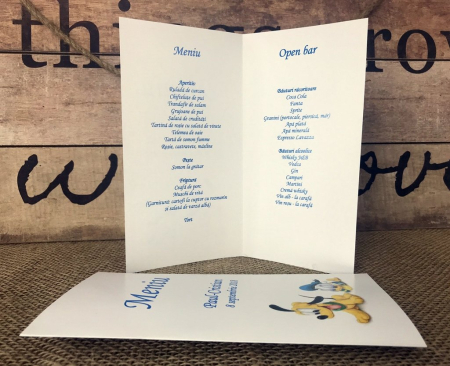 things grow
w ove
Meniu
Aperitiv
Ruladă de curcan
Chifteluțe de pui
Trandafir de salam
Grujoane de pui
Salată de crudități
Tartină de roșii cu salată de vinete
Telemea de oaie
Tartă de somon fume
Roșii, castraveți, măsline
Peste
Somon la grătar
Friptură
Ceafă de porc
Mușchi de vită
(Garnitură: cartofi la cuptor cu rozmarin
și salată de varză albă)
Tort
Open bar
Băuturi răcoritoare
Coca Cola
Fanta
Sprite
Granini (portocale, piersică, măr)
Apă plată
Apă minerală
Espresso Lavazza
Băuturi alcoolice
Whisky J&B
Vodca
Gin
Campari
Martini
Crema whisky
Vin alb - la carafă
Vin rosu - la carafă
Meniu
Paul-Cristian
8 septembrie 2018